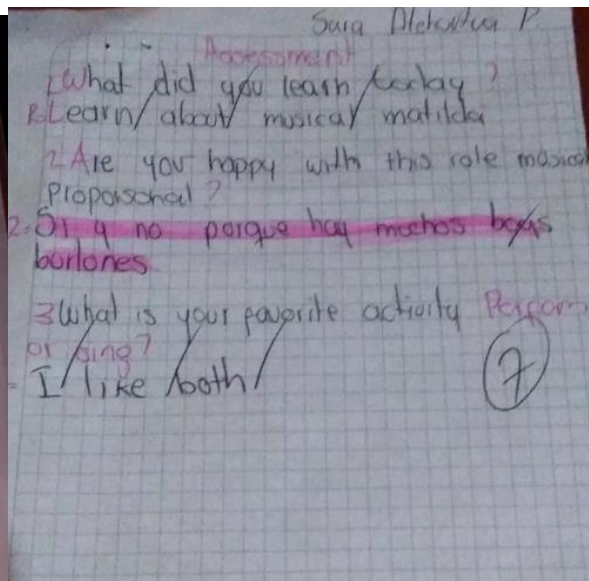 Sara P.
Assessment
1 What did you learn today?
R. Learn about musical matilda
2 Are you happy with this role musical
Proporsonal?
2. Si y no porque hay muchos boys
burlones
3 What is your favorite activity Perform
or sing?
- I like both
7